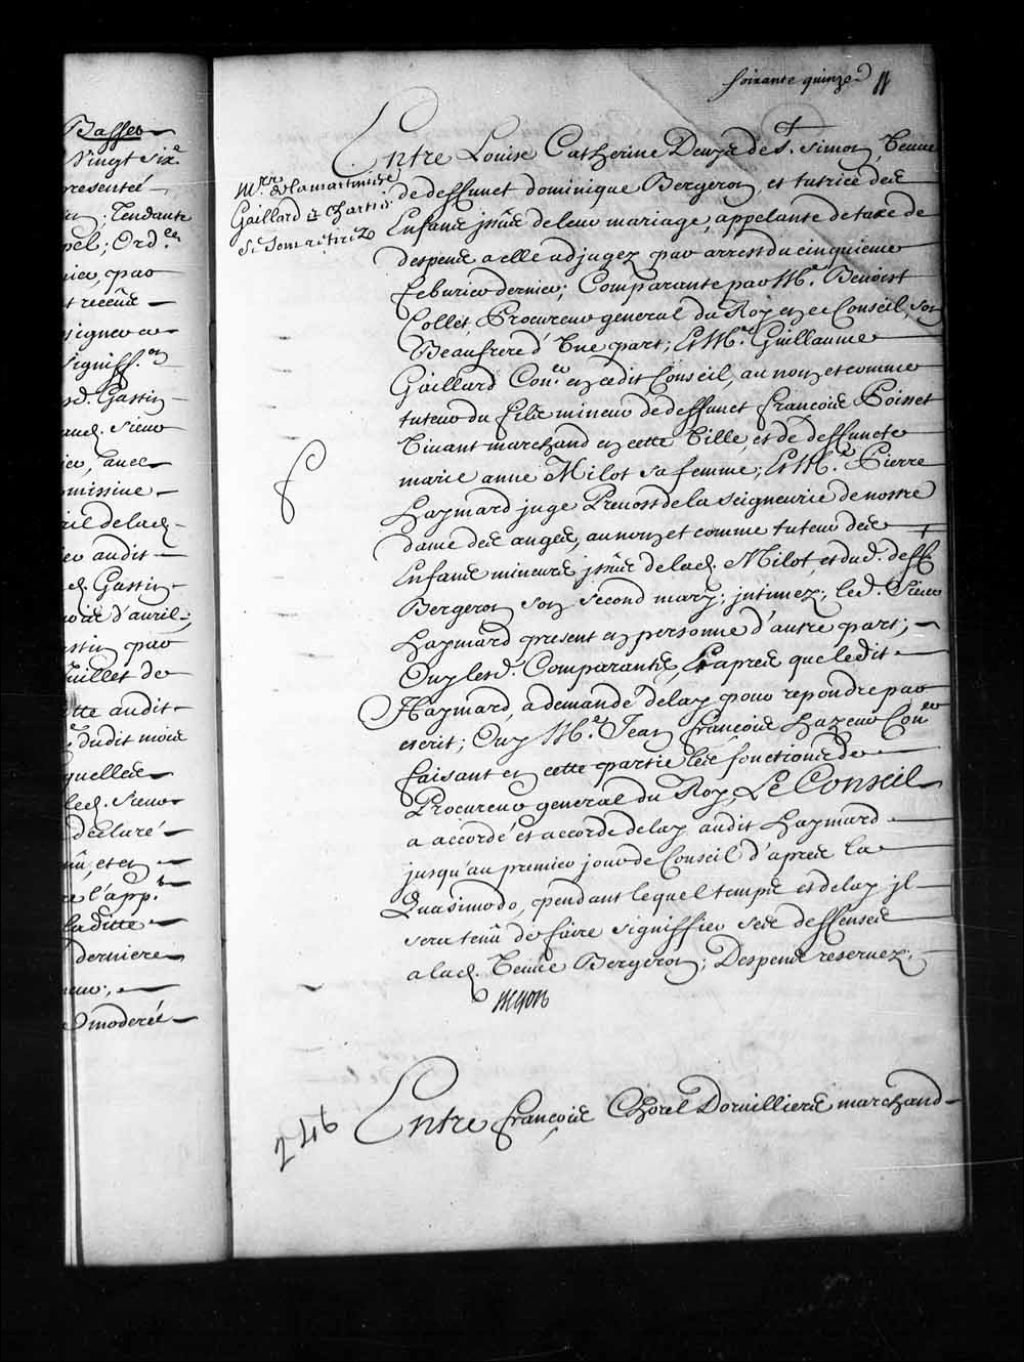 Basset
Vingt six.e
presentée
Tendante
pel; Ord.ce
par
t receüe
signer
signiff.on
d. Gastin
aud. sieur
, avec
missine
ril de lad.
audit
d. Gastin
d'avril;
stin par
Juillet de
tte audit
dudit mois
quelles
led. Sieur
declaré
nû, et en
re l'app.t
ladite
derniere
moderés
soixante quinze
Entre Louise Catherine Denys de S.t Simon, Veuve
M.rs de la martiniere
Gaillard et Chartier
se sont retirez
de deffunct dominique Bergeron, et tutrice des
Enfans issûs de leur mariage, appelante de taxe de
despens a elle adjugez par arrest du cinquieme
feburier dernier; Comparante par M.e Benoist
Collet, Procureur general du Roy en ce Conseil, son
Beaufrere d'Vne part; Et M.e Guillaume
Gaillard Con.er en cedit Conseil, au nom et comme
tuteur du fils mineur de deffunct françois Poisset
Vivant marchand en cette Ville, et de deffuncte
marie anne Milot sa femme; Et M.e Pierre
haymard juge Prevost de la seigneurie de nostre
dame des anges, au nom et comme tuteur des
Enfans mineurs issûs de lad. Milot, et dud. deff.
Bergeron son second mary; intimez; led. Sieur
haymard present en personne d'autre part;
Ouy lesd. Comparants, Et apres que ledit
Haymard, a demandé delay pour repondre par
escrit; Ouy M.e Jean françois hazeur Con.er
faisant en cette partie les fonctions de
Procureur general du Roy, Le Conseil
a accordé et accorde delay audit haymard
jusqu'au premier jour de Conseil d'apres la
Quasimodo, pendant lequel temps et delay il
sera tenû de faire signiffier ses deffenses
a lad. Veuve Bergeron; Despens reservez.
Begon
246 Entre françois Chorel Dorvilliers marchand